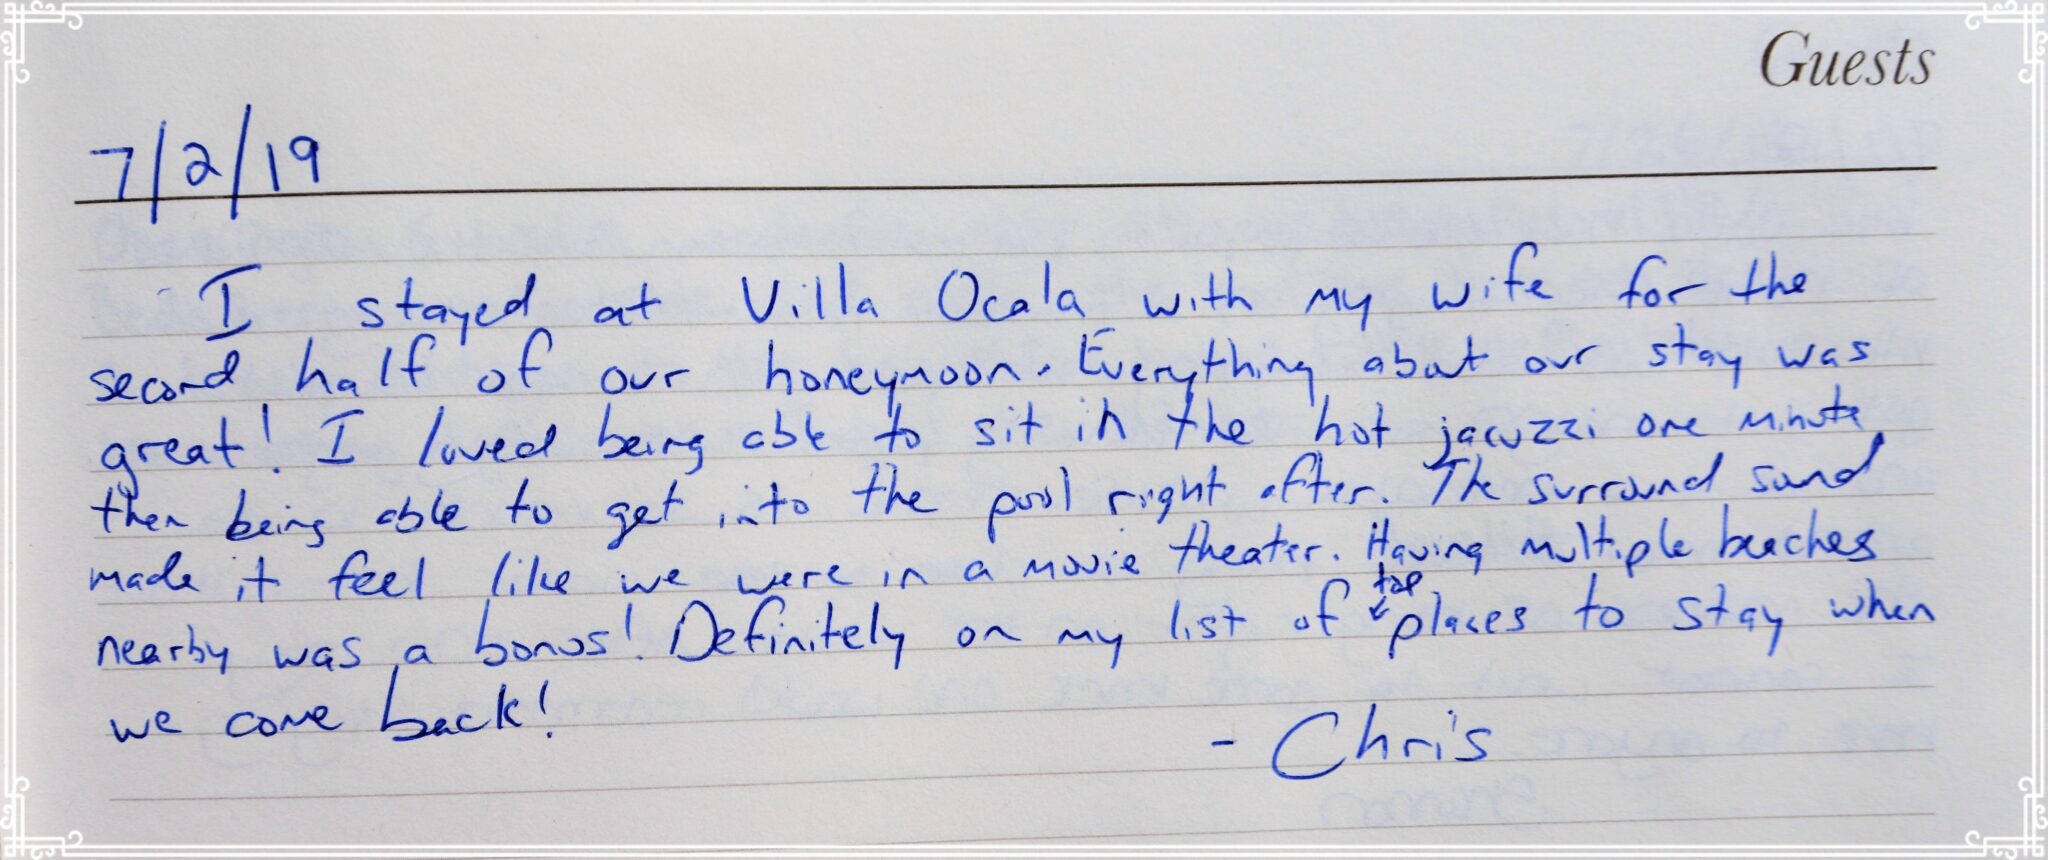 Guests
7/2/19
I stayed at Villa Ocala with my wife for the
second half of our honeymoon. Everything about our stay was
great! I loved being able to sit in the hot jacuzzi one minute,
then being able to get into the pool right after. The surround sound
made it feel like we were in a movie theater. Having multiple beaches
nearby was a bonus! Definitely on my list of top places to stay when
we come back!
- Chris